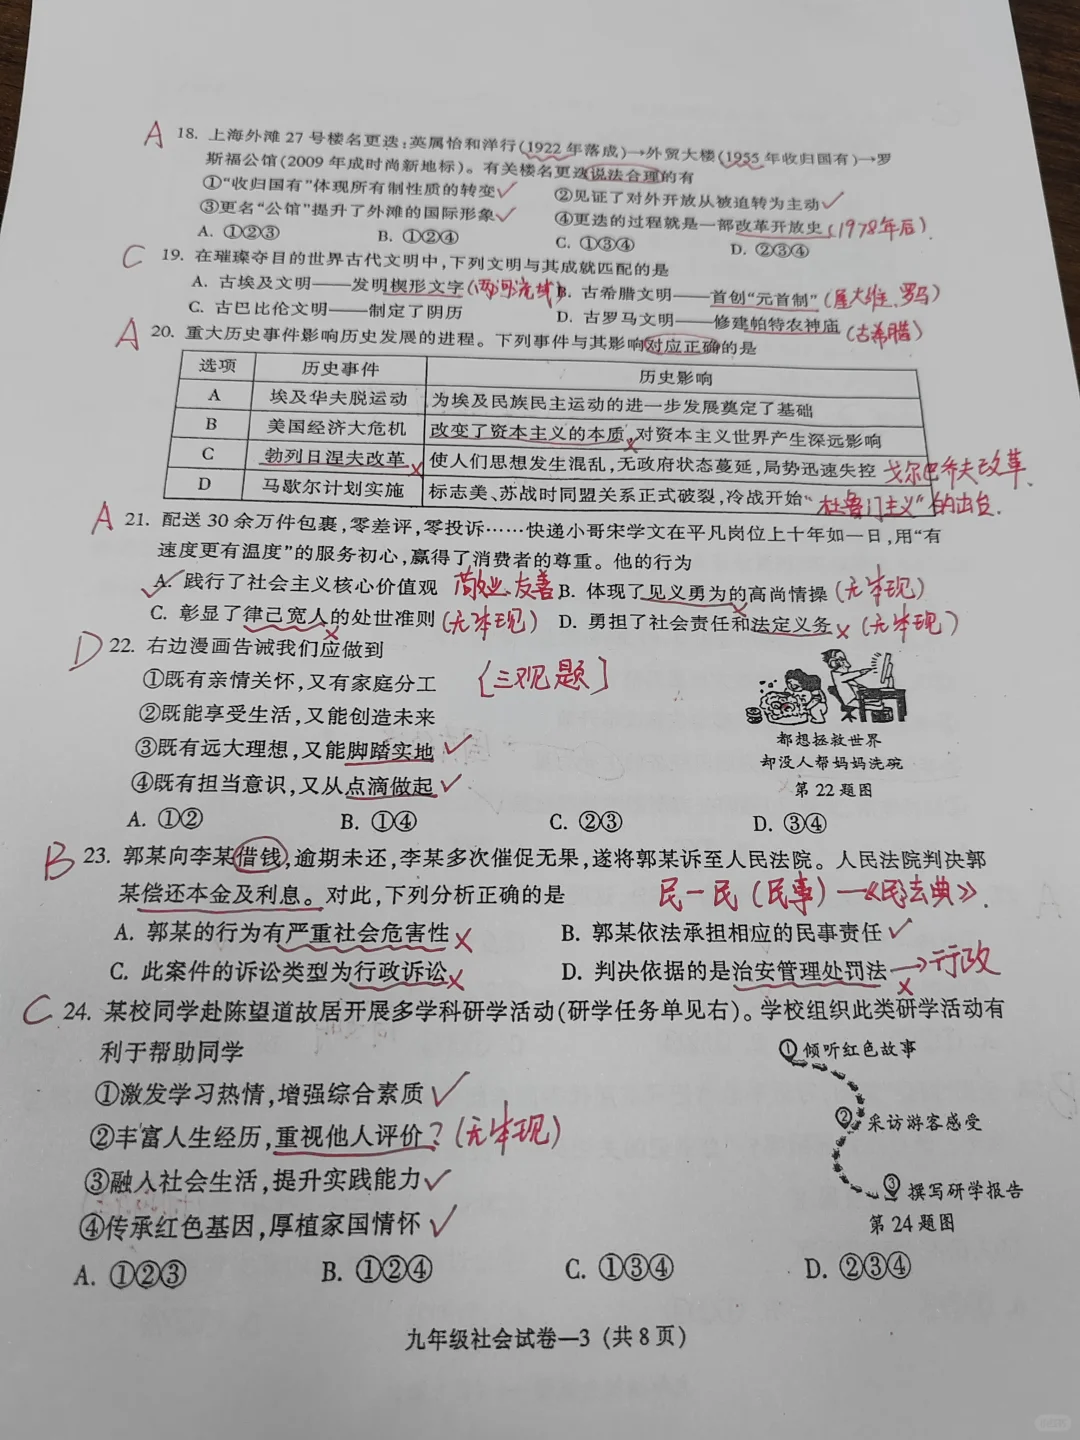 A 18. 上海外滩27号楼名更迭:英属怡和洋行(1922年落成)→外贸大楼(1955年收归国有)→罗
斯福公馆(2009年成时尚新地标)。有关楼名更迭说法合理的有
①“收归国有”体现所有制性质的转变✓ ②见证了对外开放从被迫转为主动✓
③更名“公馆”提升了外滩的国际形象✓ ④更迭的过程就是一部改革开放史(1978年后)
A. ①②③ B. ①②④ C. ①③④ D. ②③④
C 19. 在璀璨夺目的世界古代文明中,下列文明与其成就匹配的是
A. 古埃及文明——发明楔形文字(两河流域) B. 古希腊文明——首创“元首制”(屋大维、罗马)
C. 古巴比伦文明——制定了阴历 D. 古罗马文明——修建帕特农神庙(古希腊)
A 20. 重大历史事件影响历史发展的进程。下列事件与其影响对应正确的是
选项 历史事件 历史影响
A 埃及华夫脱运动 为埃及民族民主运动的进一步发展奠定了基础
B 美国经济大危机 改变了资本主义的本质,对资本主义世界产生深远影响
C 勃列日涅夫改革 使人们思想发生混乱,无政府状态蔓延,局势迅速失控 戈尔巴乔夫改革.
D 马歇尔计划实施 标志美、苏战时同盟关系正式破裂,冷战开始 “杜鲁门主义”的出台.
A 21. 配送30余万件包裹,零差评,零投诉……快递小哥宋学文在平凡岗位上十年如一日,用“有
速度更有温度”的服务初心,赢得了消费者的尊重。他的行为
A. 践行了社会主义核心价值观 敬业、友善 B. 体现了见义勇为的高尚情操(无体现)
C. 彰显了律己宽人的处世准则(无体现) D. 勇担了社会责任和法定义务(无体现)
D 22. 右边漫画告诫我们应做到
①既有亲情关怀,又有家庭分工 [三观题]
②既能享受生活,又能创造未来
③既有远大理想,又能脚踏实地✓
④既有担当意识,又从点滴做起✓
都想拯救世界
却没人帮妈妈洗碗
第22题图
A. ①② B. ①④ C. ②③ D. ③④
B 23. 郭某向李某借钱,逾期未还,李某多次催促无果,遂将郭某诉至人民法院。人民法院判决郭
某偿还本金及利息。对此,下列分析正确的是 民—民(民事)—《民法典》.
A. 郭某的行为有严重社会危害性× B. 郭某依法承担相应的民事责任✓
C. 此案件的诉讼类型为行政诉讼× D. 判决依据的是治安管理处罚法×→行政
C 24. 某校同学赴陈望道故居开展多学科研学活动(研学任务单见右)。学校组织此类研学活动有
利于帮助同学
①激发学习热情,增强综合素质✓
②丰富人生经历,重视他人评价?(无体现)
③融入社会生活,提升实践能力✓
④传承红色基因,厚植家国情怀✓
① 倾听红色故事
② 采访游客感受
③ 撰写研学报告
第24题图
A. ①②③ B. ①②④ C. ①③④ D. ②③④
九年级社会试卷—3(共8页)